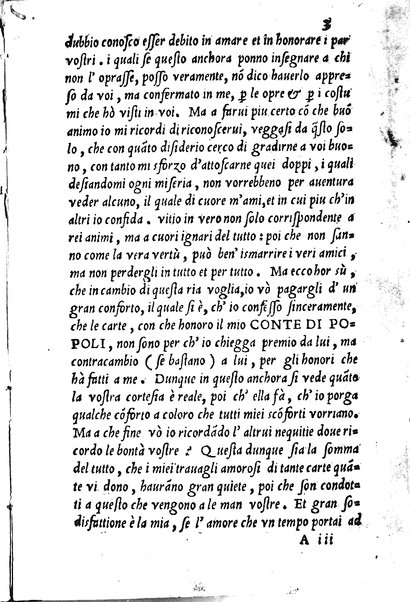 3
dubbio conosco esser debito in amare et in honorare i pari
vostri. i quali se questo anchora ponno insegnare a chi
non l' oprasse, posso veramente, nō dico hauerlo appre-
so da voi, ma confermato in me, ꝑ le opre & ꝑ i costu
mi che hò visti in voi. Ma a farui piu certo cō che buō
animo io mi ricordi di riconoscerui, veggasi da q̃sto so-
lo, che con quāto disiderio cerco di gradirne a voi buo-
no, con tanto mi sforzo d'attoscarne quei doppi, i quali
desiandomi ogni miseria, non vorrebbeno per auentura
veder alcuno, il quale di cuore m'ami, et in cui piu ch'in
altri io confida. vitio in vero non solo corrispondente a
rei animi, ma a cuori ignari del tutto: poi che non san-
no come la vera vertù, può ben' ismarrire i veri amici,
ma non perdergli in tutto et per tutto. Ma ecco hor sù,
che in cambio di questa ria voglia, io vò pagargli d' un
gran conforto, il quale si è, ch' io confesso sinceramente,
che le carte, con che honoro il mio CONTE DI PO-
POLI, non sono per ch' io chiegga premio da lui, ma
contracambio (se bastano) a lui, per gli honori che
hà fatti a me. Dunque in questo anchora si vede quāto
la vostra cortesia è reale, poi ch' ella fà, ch' io porga
qualche cōforto a coloro che tutti miei scōforti vorriano.
Ma a che fine vò io ricordādo l' altrui nequitie doue ri-
cordo le bontà vostre? Questa dunque sia la somma
del tutto, che i miei trauagli amorosi di tante carte quā-
te vi dono, haurāno gran quiete, poi che son condot-
ti a questo che vengono a le man vostre. Et gran so-
disfattione è la mia, se l' amore che vn tempo portai ad
A iii